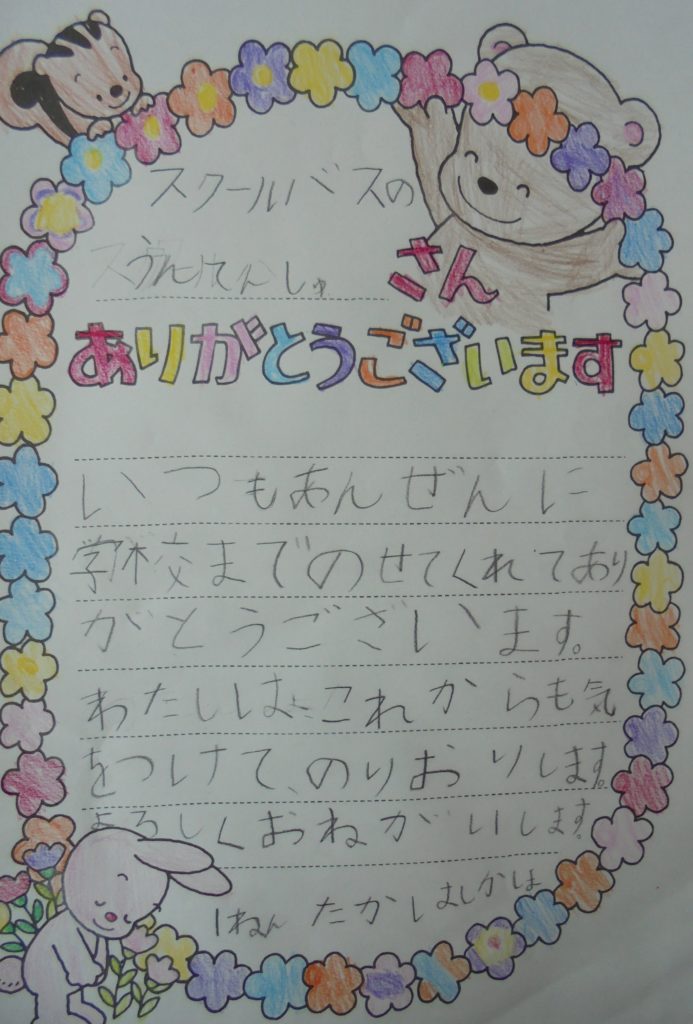 スクールバスの
うんてんしゅ さん
ありがとうございます
いつもあんぜんに
学校までのせてくれてあり
がとうございます。
わたしは、これからも気
をつけて、のりおりします。
よろしくおねがいします。
1ねん たかはし